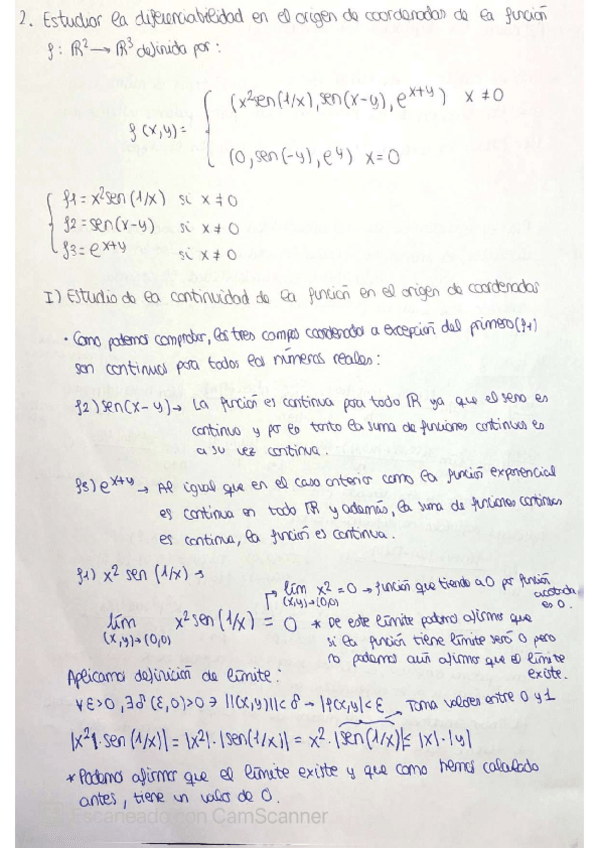 2. Estudiar la diferenciabilidad en el origen de coordenadas de la función
f: ℝ² → ℝ³ definida por:
f(x,y) = { (x² sen(1/x), sen(x-y), e^(x+y)) x ≠ 0
(0, sen(-y), e^y) x = 0
{ f1 = x² sen(1/x) si x ≠ 0
f2 = sen(x-y) si x ≠ 0
f3 = e^(x+y) si x ≠ 0
I) Estudio de la continuidad de la función en el origen de coordenadas
· Como podemos comprobar, los tres campos coordenados a excepción del primero (f1)
son continuos para todos los números reales:
f2) sen(x-y) → La función es continua para todo ℝ ya que el seno es
continuo y por lo tanto la suma de funciones continuas es
a su vez continua.
f3) e^(x+y) → Al igual que en el caso anterior como la función exponencial
es continua en todo ℝ y además, la suma de funciones continuas
es continua, la función es continua.
f1) x² sen (1/x) →
lím (x,y)→(0,0) x² = 0 → función que tiende a 0 por función acotada es 0.
lím (x,y)→(0,0) x² sen(1/x) = 0 * De este límite podemos afirmar que
si la función tiene límite será 0 pero
no podemos aún afirmar que el límite
existe.
Aplicamos definición de límite:
∀ε>0, ∃δ(ε,0)>0 ∋ ||(x,y)||<δ → |f(x,y)|<ε → Toma valores entre 0 y 1
|x²|·sen(1/x)| = |x²|·|sen(1/x)| = x²·|sen(1/x)| ≤ |x|·|y|
* Podemos afirmar que el límite existe y que como hemos calculado
antes, tiene un valor de 0.
Escaneado con CamScanner